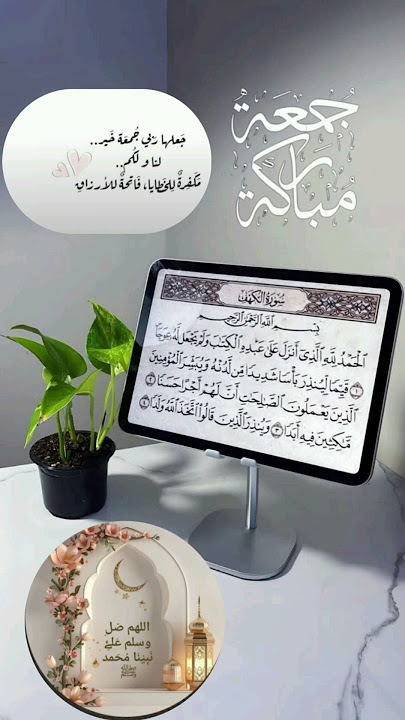 جُمعَة
مُباركة
جَعلها ربّي جُمعَة خَير..
لنا و لكُم..
مَكَفِرةٌ لِلخَطايا، فَاتحةٌ للأرزاق
سُورَةُ الكَهف
بِسْمِ اللَّهِ الرَّحْمَٰنِ الرَّحِيمِ
الْحَمْدُ لِلَّهِ الَّذِي أَنزَلَ عَلَىٰ عَبْدِهِ الْكِتَابَ وَلَمْ يَجْعَل لَّهُ عِوَجًا
١ قَيِّمًا لِّيُنذِرَ بَأْسًا شَدِيدًا مِّن لَّدُنْهُ وَيُبَشِّرَ الْمُؤْمِنِينَ
الَّذِينَ يَعْمَلُونَ الصَّالِحَاتِ أَنَّ لَهُمْ أَجْرًا حَسَنًا ٢
مَّاكِثِينَ فِيهِ أَبَدًا ٣ وَيُنذِرَ الَّذِينَ قَالُوا اتَّخَذَ اللَّهُ وَلَدًا ٤
اللهم صَل
وسلم عَلىٰ
نَبينَا مُحَمد
ﷺ